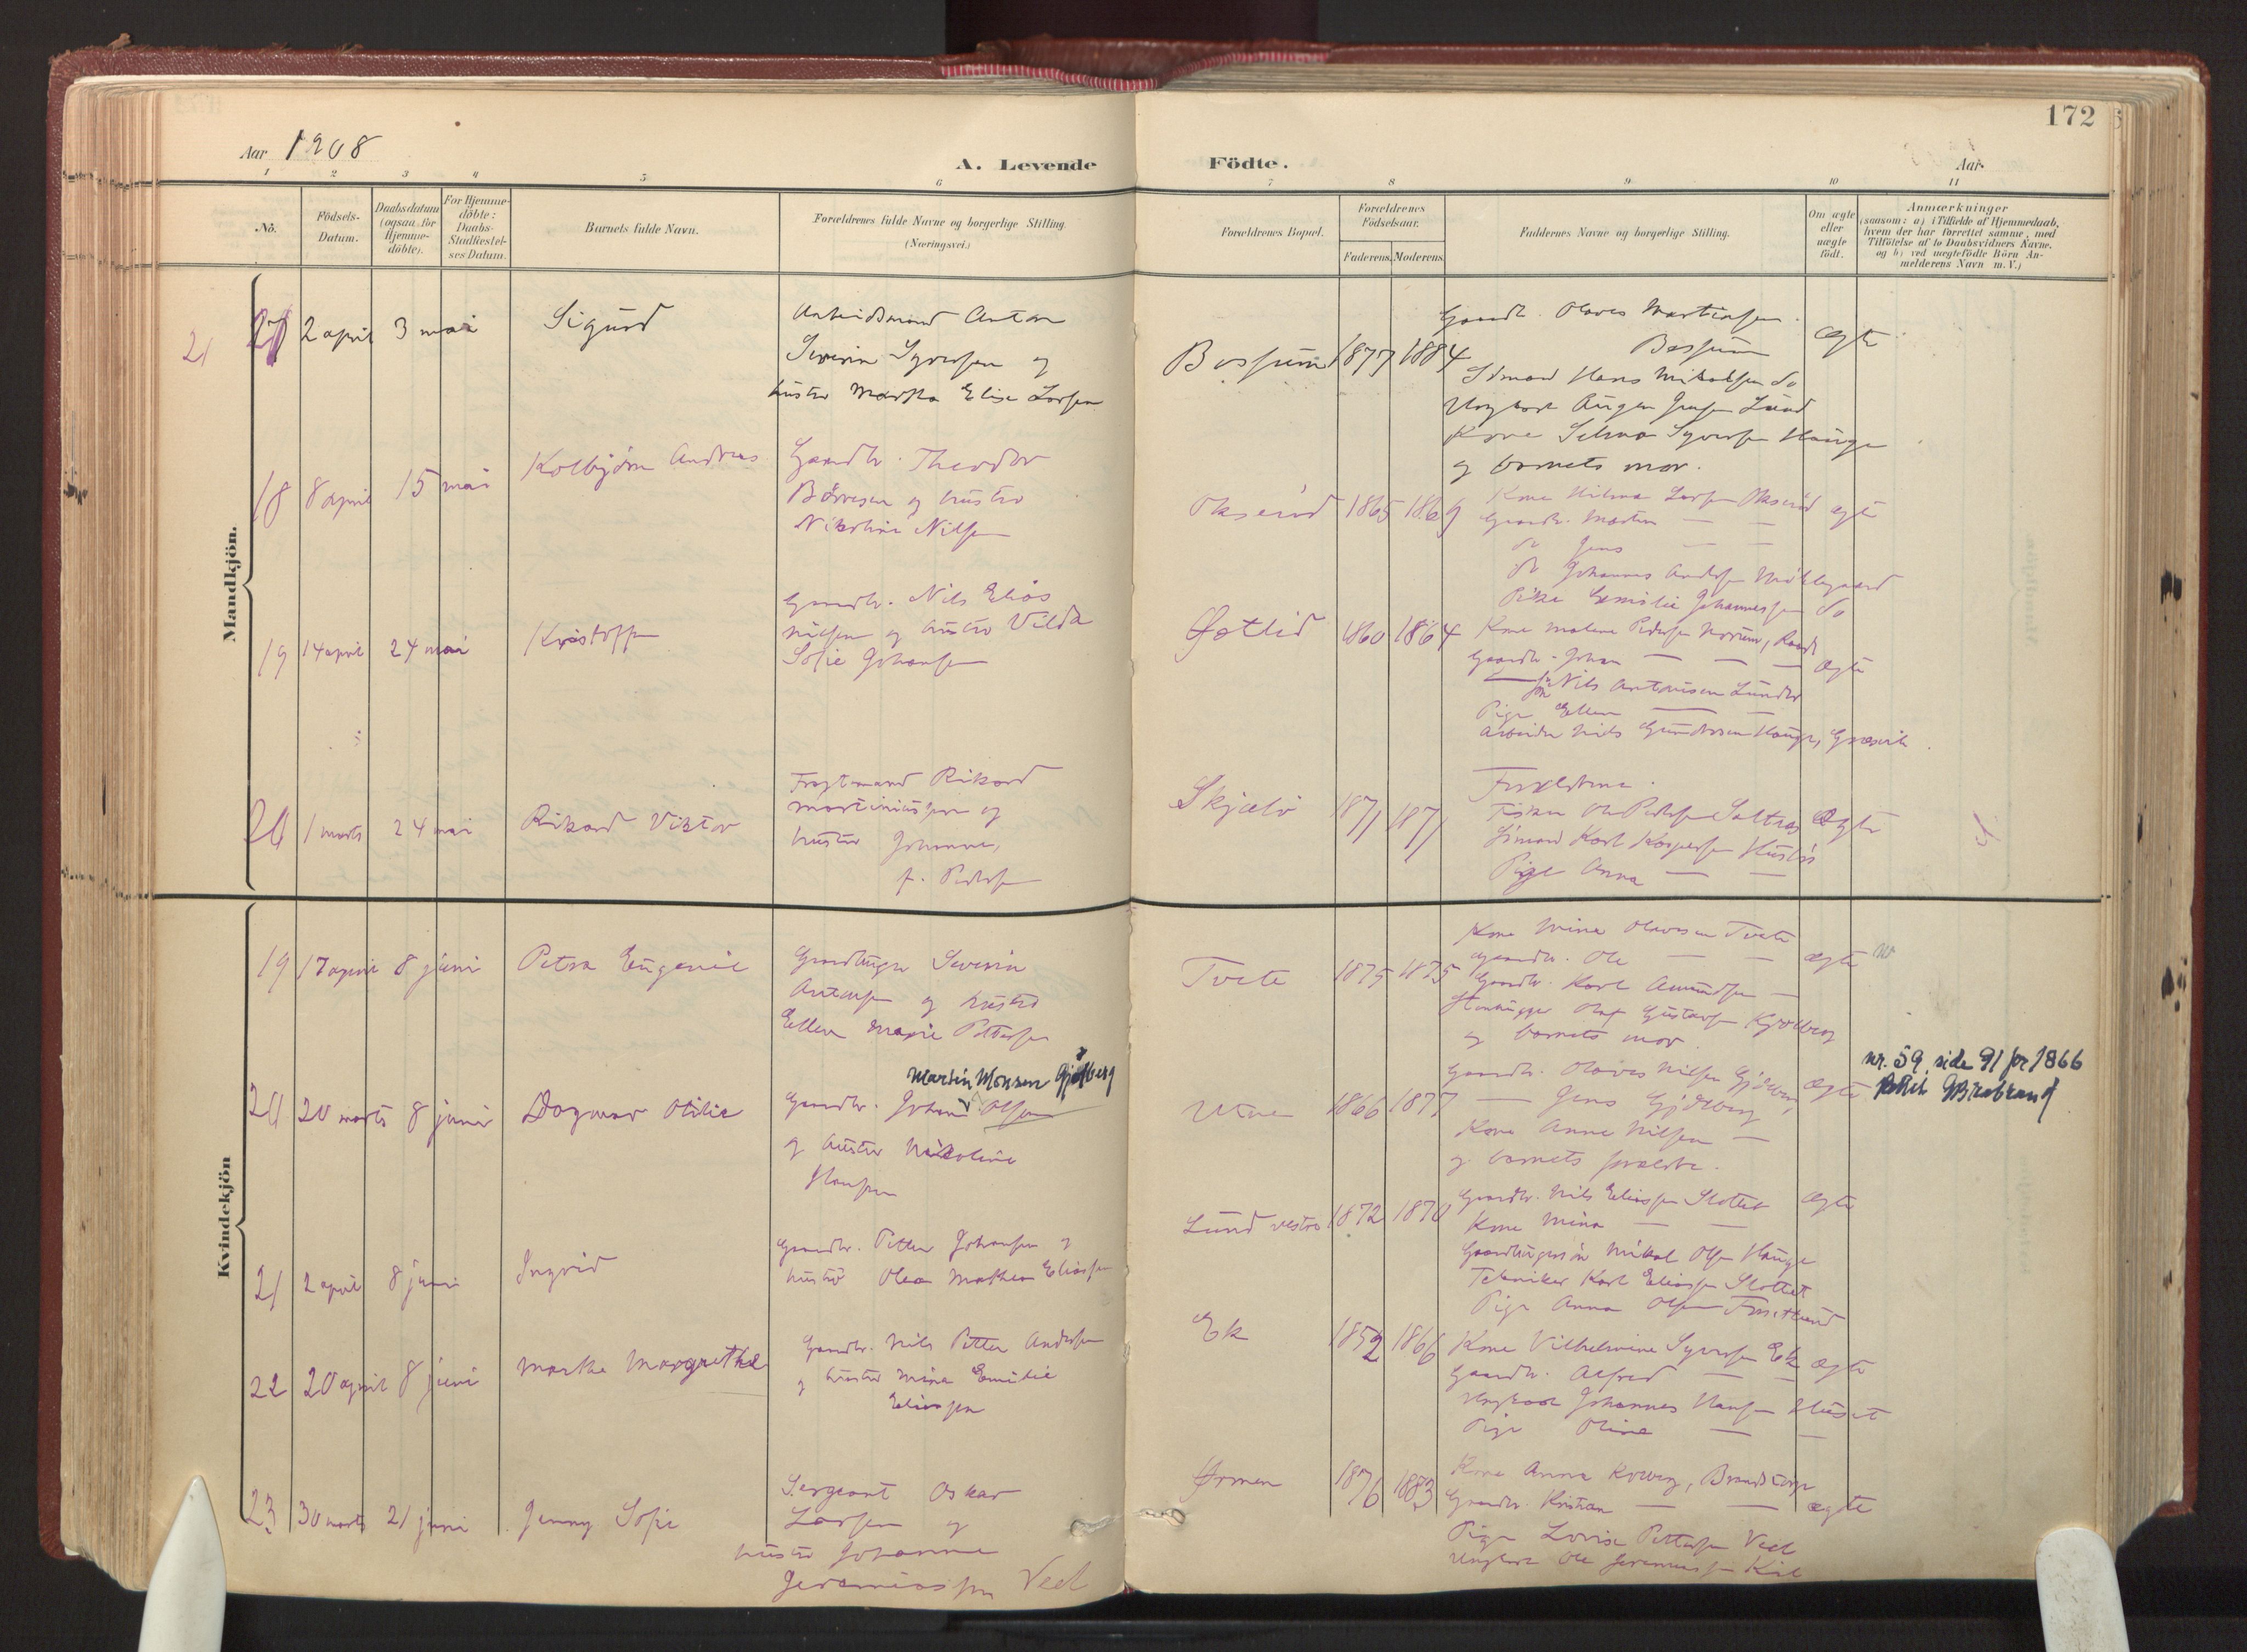 172
Aar 1908
A. Levende
Födte.
Aar
1 2 3 4 5 6 7 8 9 10 11
No.
Födsels-
Datum.
Daabsdatum
(ogsaa for
Hjemme-
döbte).
For Hjemme-
döbte:
Daabs-
Stadfæstel-
ses Datum.
Barnets fulde Navn.
Forældrenes fulde Navne og borgerlige Stilling
(Næringsvei.)
Forældrenes Bopæl.
Forældrenes
Födselsaar.
Faderens. Moderens.
Faddernes Navne og borgerlige Stilling.
Om ægte
eller
uægte
födt.
Anmærkninger
(saasom: a) i Tilfælde af Hjemmedaab,
hvem der har forrettet samme, med
Tilföielse af to Daabsvidners Navne,
og b) ved uægtefödte Börn An-
melderens Navn m. V.)
Mandkjön.
21
2 april 3 mai Sigurd
Arbeidsmand Anton
Severin Syversen og
hustru Martha Elise Larsen
1877 1884
Gaardbr. Olaves Martinsen
ægte
Sömand Hans Mikalsen do
Ungkarl
Kone Selma Syversen Hauge
og barnets mor.
18 8 april 15 mai Kolbjörn Andreas
Gaardbr. Theodor
Börresen og hustru
Nikoline Nilsen
Okserød 1865 1869
Kone Hilma Larsen Okserød ægte
Gaardbr. Martin — —
do Jens — —
do Johannes Andersen
Pike Emilie Johannessen do
19 14 april 24 mai Kristoffer
Gaardbr. Nils Elias
Nilsen og hustru Vilda
Sofie Johansen
Østlid 1860 1864
Kone Malene Pedersen
Gaardbr. Johan — — — ægte
Nils Antonisen
Pige Ellen — —
Arbeider Nils Gundersen Hauge,
20 1 marts 24 mai Rikard Viktor
Fragtmand Rikard
Martiniussen og
hustru Johanne,
f. Pedersen
Skjælö 1871 1871
Forældrene.
Fisker Ole Pedersen ægte
Sömand Karl Kaspersen
Pige Anna — —
Kvindekjön
19 17 april 8 juni Petra Eugenie
Gaardbruger Severin
Antonsen og hustru
Ellen Marie Pettersen
Tvete 1875 1875
Kone Mina Olavesen Tvete
Gaardbr. Ole — — ægte
Gaardbr. Karl Amundsen —
Stenhugger Olaf Gustavsen Kjölberg
og barnets mor.
20 20 marts 8 juni Dagmar Otilie
Martin Monsen Gjølberg
Gaardbr. Johan Olsen
og hustru Nikoline
Hansen
1866 1877
Gaardbr. Olaves Nilsen Gjölberg, ægte
— Jens Gjölberg
Kone Anne Nilsen —
og barnets forældre.
nr. 59, side 91 for 1866
21 2 april 8 juni Ingrid
Gaardbr. Petter Johansen og
hustru Olea Mathea Eliassen
Lund vestre 1872 1870
Gaardbr. Nils Eliassen Slottet ægte
Kone Mina — —
Gaardbrugersön Mikal Olsen Hauge
Tekniker Karl Eliassen Slottet
Pige Anna Olsen
22 20 april 8 juni Marthe Margrethe
Gaardbr. Nils Petter Andersen
og hustru Mina Emilie
Eliassen
Ek 1852 1866
Kone Vilhelmine Syversen Ek ægte
Gaardbr. Alfred — —
Ungkarl Johannes Hansen Huset
Pige Oline — —
23 30 marts 21 juni Jenny Sofie
Sergeant Oskar
Larsen og
hustru Johanne
Jeremiassen Veel
Ørmen 1876 1883
Kone Anna
Gaardbr. Kristian — — ægte
Pige Lovise Pettersen Veel
Ungkarl Ole Jeremiassen